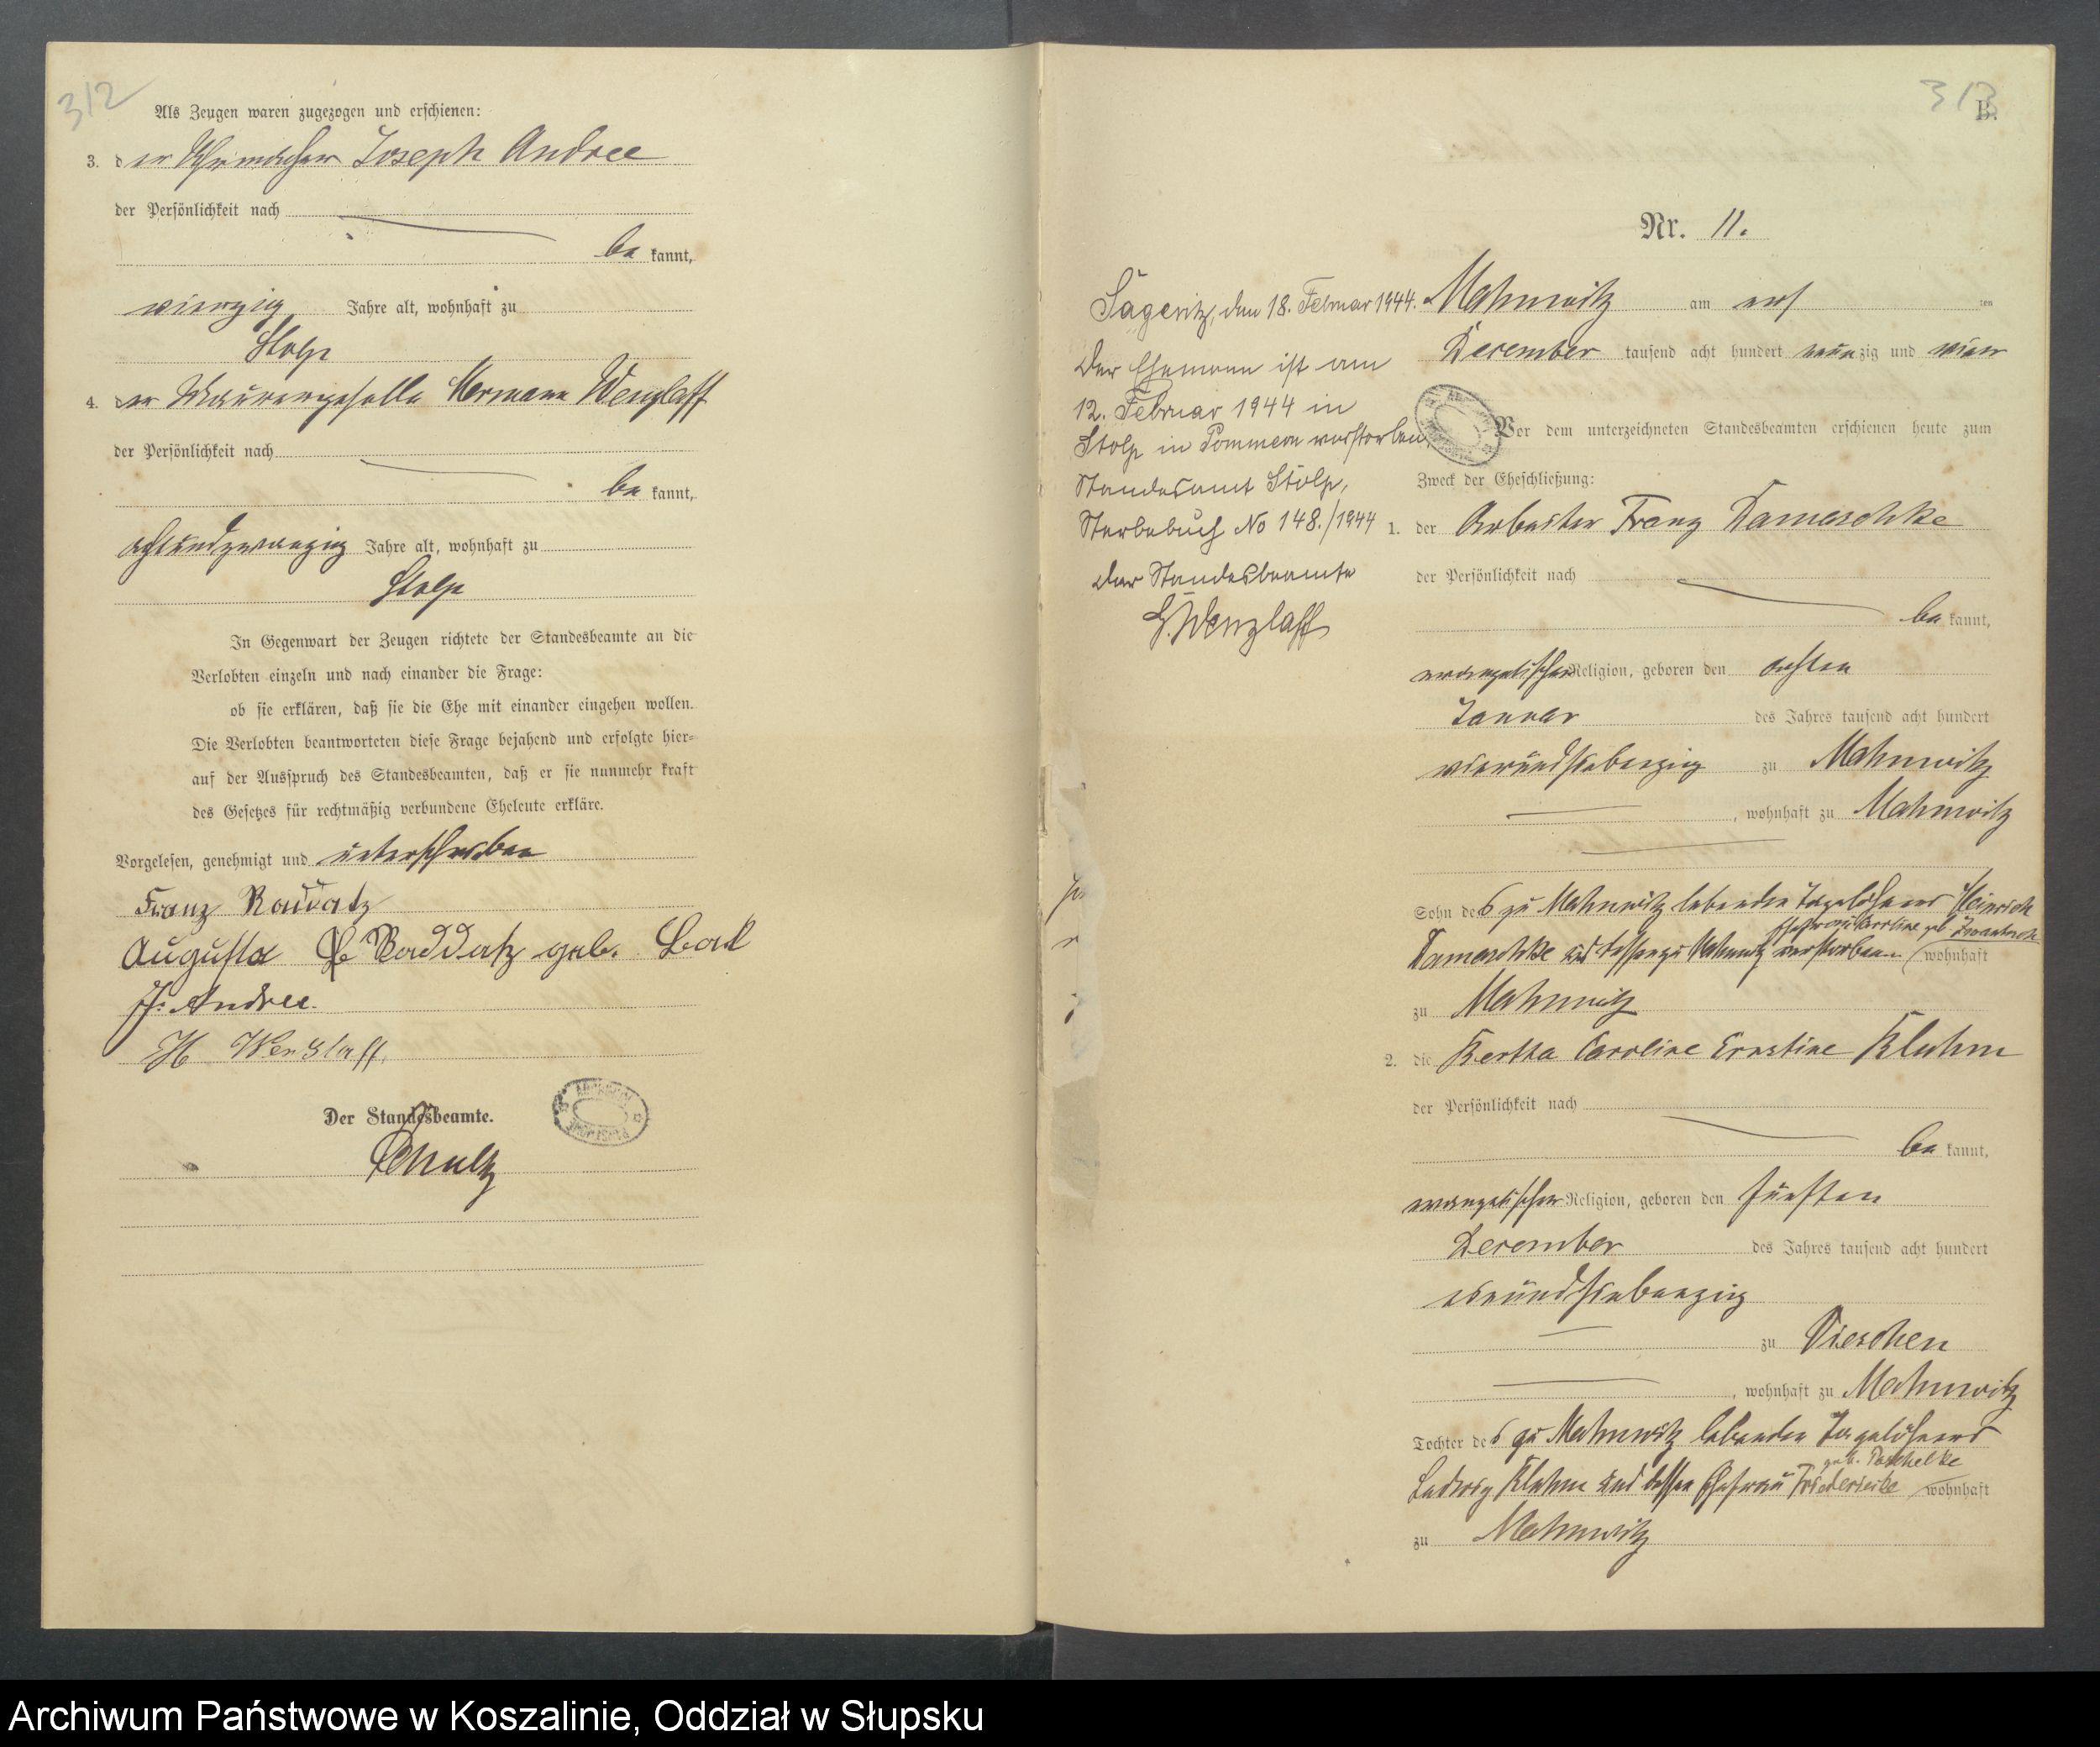 312
Als Zeugen waren zugezogen und erschienen:
3. der Uhrmacher Joseph Andree
der Persönlichkeit nach
be kannt,
vierzig Jahre alt, wohnhaft zu
Stolp
4. der Maurergeselle Hermann Wenzlaff
der Persönlichkeit nach
be kannt,
achtundzwanzig Jahre alt, wohnhaft zu
Stolp
In Gegenwart der Zeugen richtete der Standesbeamte an die
Verlobten einzeln und nach einander die Frage:
ob sie erklären, daß sie die Ehe mit einander eingehen wollen.
Die Verlobten beantworteten diese Frage bejahend und erfolgte hier-
auf der Ausspruch des Standesbeamten, daß er sie nunmehr kraft
des Gesetzes für rechtmäßig verbundene Eheleute erkläre.
Vorgelesen, genehmigt und unterschrieben
Franz Raddatz
Auguste Raddatz geb.
J. Andree.
H Wenzlaff
Der Standesbeamte.
Schultz
313
B.
Nr. 11.
Mahnwitz am
Dezember tausend acht hundert neunzig und vier
Vor dem unterzeichneten Standesbeamten erschienen heute zum
Zweck der Eheschließung:
1. der Arbeiter Franz Damaschke
der Persönlichkeit nach
be kannt,
evangelischer Religion, geboren den
Januar des Jahres tausend acht hundert
vierundsiebenzig zu Mahnwitz
, wohnhaft zu Mahnwitz
Sohn des zu Mahnwitz lebenden Tagelöhners Heinrich
Ehefrau Caroline geb
Damaschke und dessen zu Mahnwitz verstorbenen wohnhaft
zu Mahnwitz
2. die Bertha Caroline Ernstine Kluhm
der Persönlichkeit nach
be kannt,
evangelischer Religion, geboren den fünften
Dezember des Jahres tausend acht hundert
einundsiebenzig
zu Vieschen
, wohnhaft zu Mahnwitz
Tochter des zu Mahnwitz lebenden Tagelöhners
geb. Paschelke
Ludwig Kluhm und dessen Ehefrau Friedericke wohnhaft
zu Mahnwitz
Sageritz, den 18. Februar 1944.
Der Ehemann ist am
12. Februar 1944 in
Stolp in Pommern verstorben,
Standesamt Stolp,
Sterbebuch No 148./1944
Der Standesbeamte
Wenzlaff
Archiwum Państwowe w Koszalinie, Oddział w Słupsku